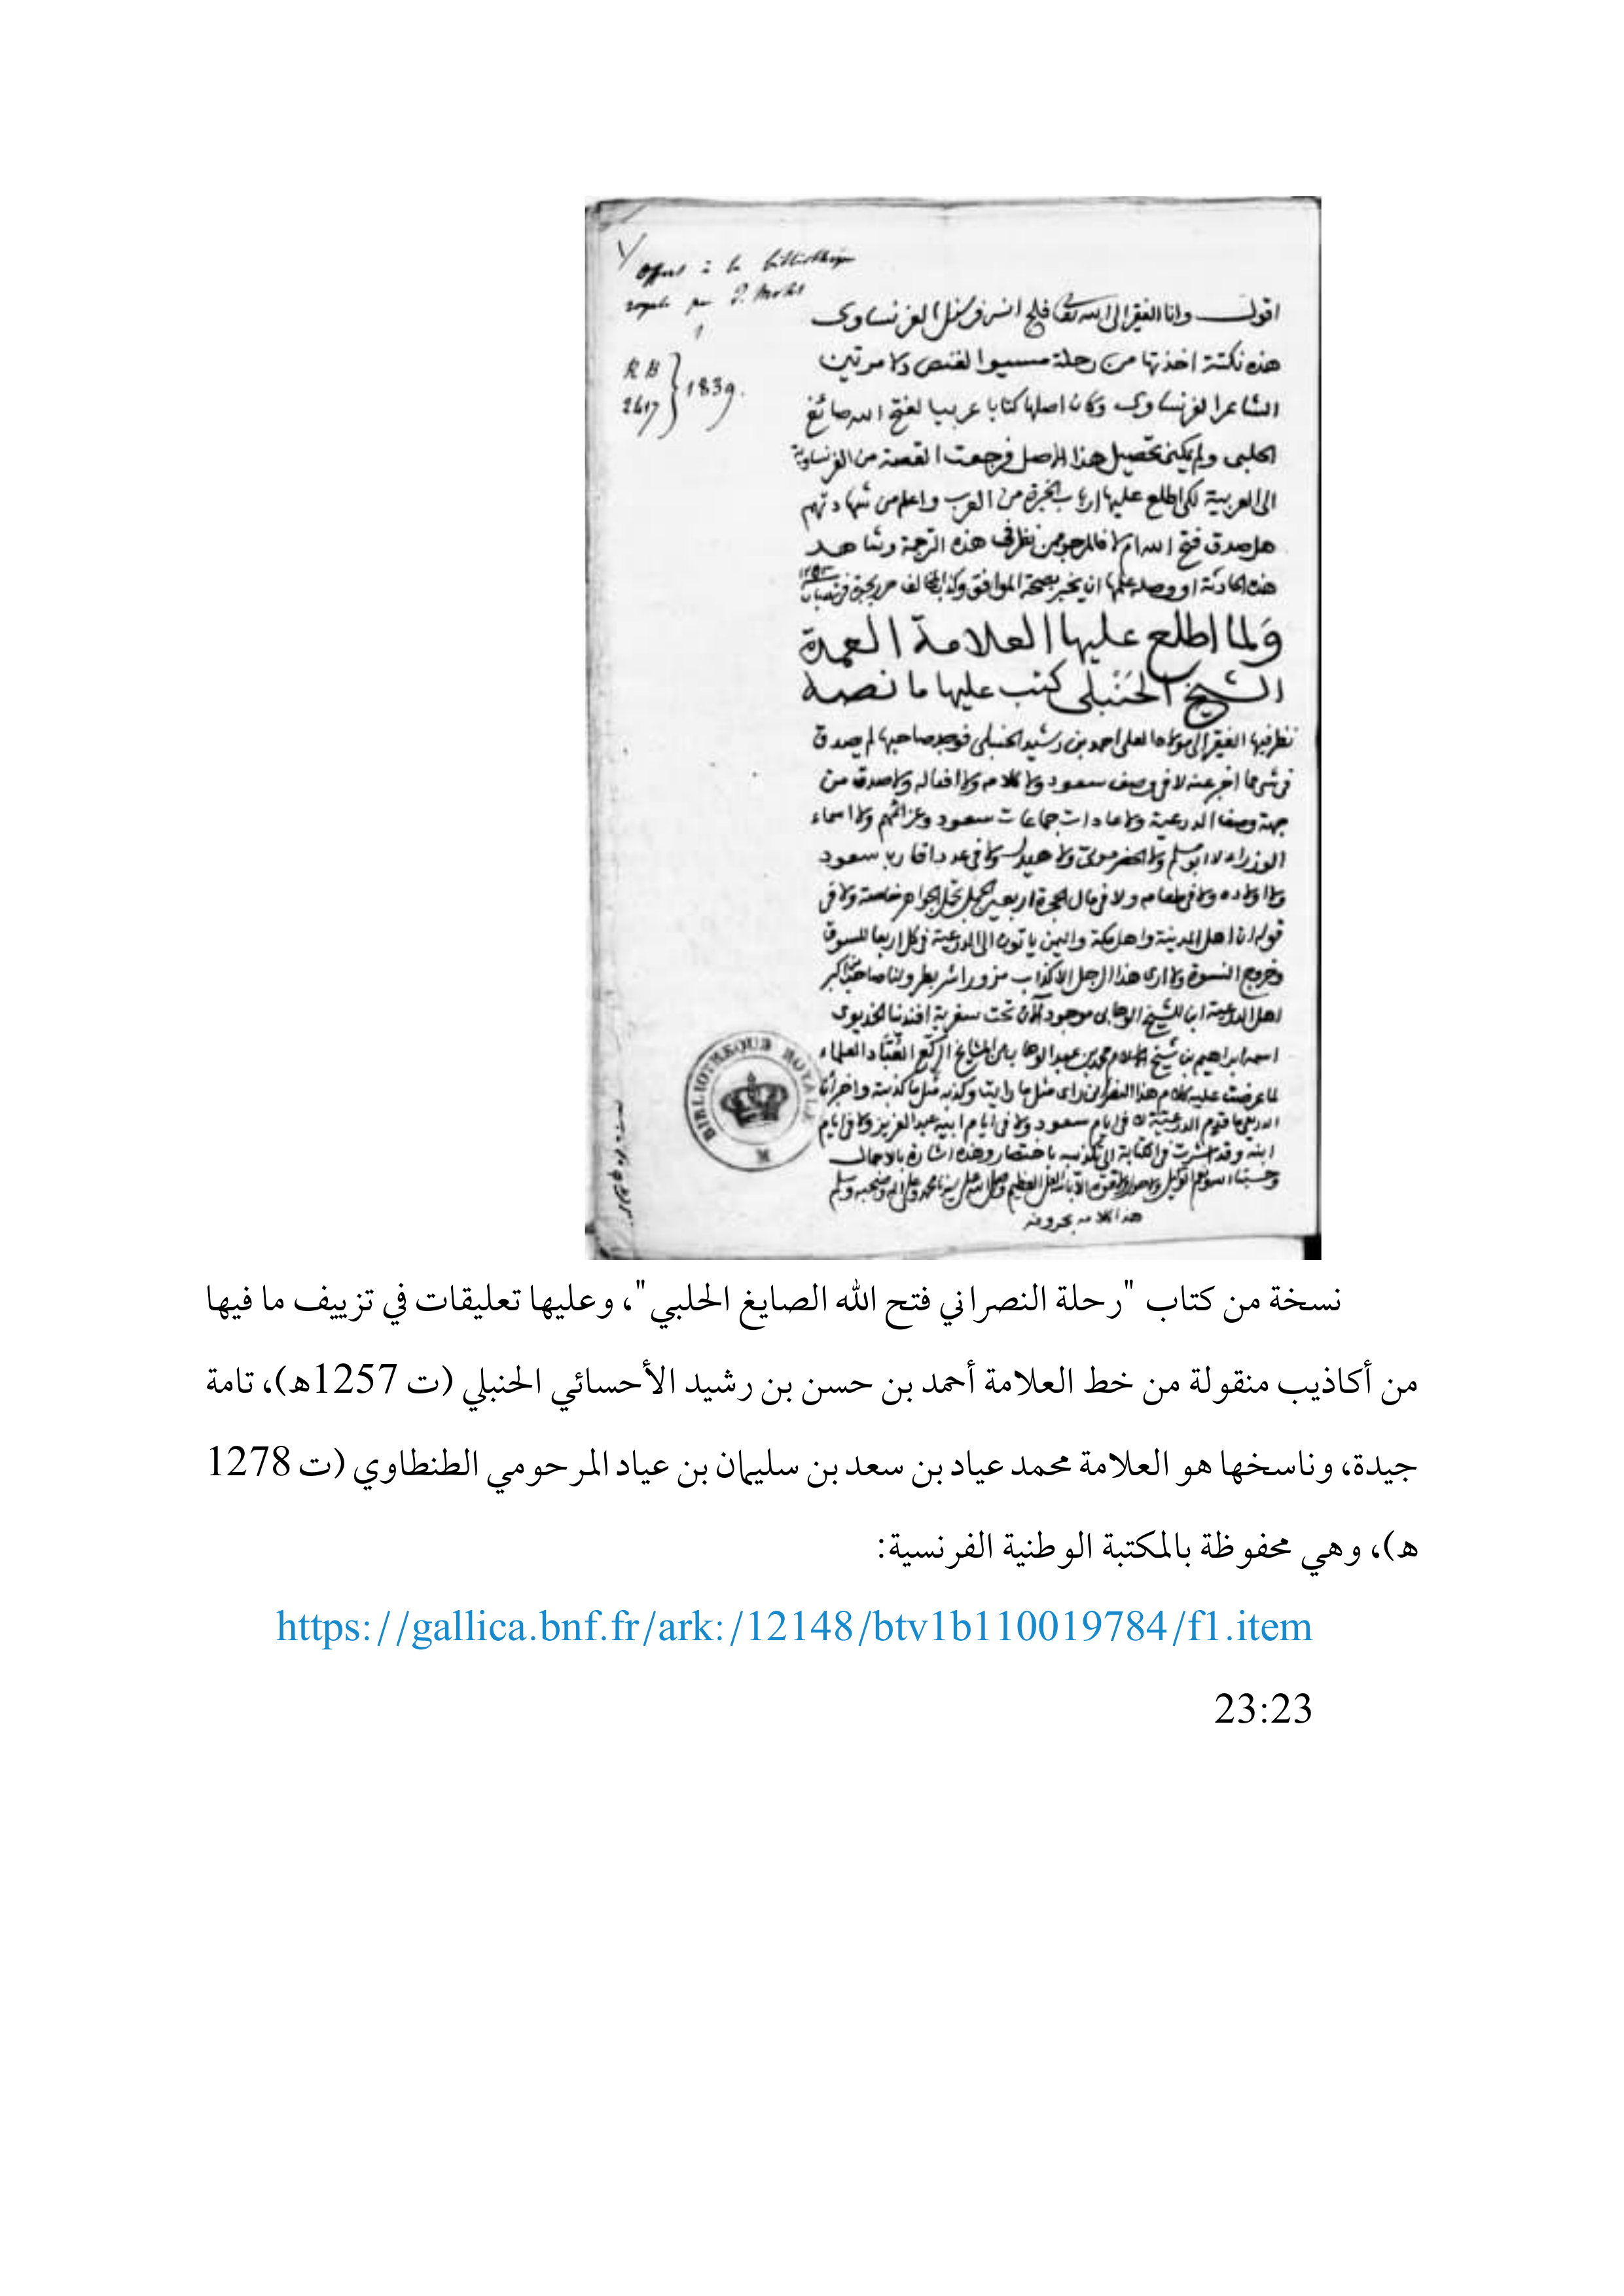 Offert à la bibliothèque
royale par J. Mohl
1
R B
2417 } 1839.
اقول وانا الفقير الى الله تعالى فلجانس فرسنل الفرنساوى
هذه نكتة اخذتها من رحلة مسيو الفنص دلامرتين
الشاعر الفرنساوى وكان اصلها كتابا عربيا لفتح الله صائغ
الحلبى ولم يمكنى تحصيل هذا الاصل فرجعت القصة من الفرنساوية
الى العربية لكى اطلع عليها ارباب الخبرة من العرب واعلم من شهادتهم
هل صدق فتح الله ام لا فالمرجو ممن نظر فى هذه الترجمة وشاهد
هذه الحادثة او وصله علمها ان يخبر بصحة الموافق وكذب المخالف
ولما اطلع عليها العلامة العمدة
الشيخ الحنبلى كتب عليها ما نصه
نظر فيها الفقير الى مولاه العلى احمد بن رشيد الحنبلى فوجد صاحبها لم يصدق
فى شى مما اخبر عنه لا فى وصف سعود ولا كلامه ولا افعاله ولا صدق من
جهة وصف الدرعية ولا عادات جماعات سعود وعزائمهم ولا اسماء
الوزراء لا ابو مسلم ولا الحضرموتى ولا هيدل ولا فى عدد اقارب سعود
ولا اولاده ولا فى طعامه ولا فى مال الحجرة اربعين الجمل تحمل الجواهر خاصة ولا فى
قوله ان اهل المدينة واهل مكة واليمن ياتون الى الدرعية فى كل اربعا للسوق
وخروج النسوة ولا ارى هذا الرجل الا كذاب مزورا اشر بطر ولنا صاحب من اكبر
اهل الدرعية ابن للشيخ الوهابى موجود الآن تحت سفرية افندنا الخديوى
اسمه ابراهيم بن شيخ الاسلام محمد بن عبد الوهاب من المشايخ الركّع العُبّاد العلماء
لما عرضت عليه كلام هذا النصرانى راى مثل ما رايت وكذبه مثل ما كذبته واخبر أن
الدريعى ما قدم الدرعية لا فى ايام سعود ولا فى ايام ابيه عبد العزيز ولا فى ايام
ابنه وقد اشرت فى الكتابة الى تكذيبه باختصار وهذه اشارة بالاجمال
وحسبنا الله ونعم الوكيل ولا حول ولا قوة الا بالله العلى العظيم وصلى الله على سيدنا محمد وعلى اله وصحبه وسلم
هذا كلامه بحروفه
BIBLIOTHEQUE ROYALE
نسخة من كتاب "رحلة النصراني فتح الله الصايغ الحلبي"، وعليها تعليقات في تزييف ما فيها
من أكاذيب منقولة من خط العلامة أحمد بن حسن بن رشيد الأحسائي الحنبلي (ت 1257هـ)، تامة
جيدة، وناسخها هو العلامة محمد عياد بن سعد بن سليمان بن عياد المرحومي الطنطاوي (ت 1278
هـ)، وهي محفوظة بالمكتبة الوطنية الفرنسية:
https://gallica.bnf.fr/ark:/12148/btv1b110019784/f1.item
23:23